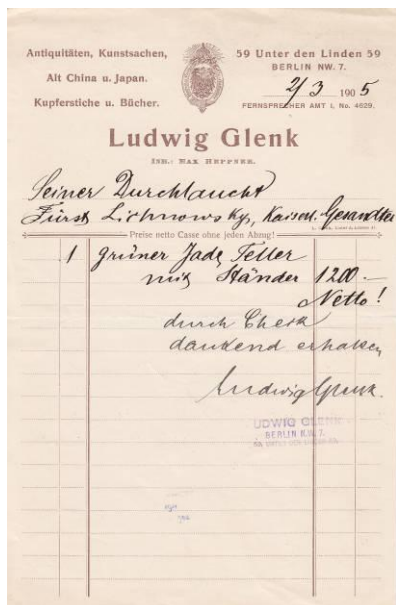 Antiquitäten, Kunstsachen,
Alt China u. Japan.
Kupferstiche u. Bücher.
59 Unter den Linden 59
BERLIN NW. 7.
2/3 1905
FERNSPRECHER AMT I, No. 4629.
Ludwig Glenk
INH.: MAX HEPPNER.
Seiner Durchlaucht
Fürst Lichnowsky, Kaiserl. Gesandter
Preise netto Casse ohne jeden Abzug!
1 grüner Jade Teller
mit Ständer 1200.—
Netto!
durch Check
dankend erhalten
Ludwig Glenk.
LUDWIG GLENK
BERLIN N.W. 7.
59, UNTER DEN LINDEN 59.